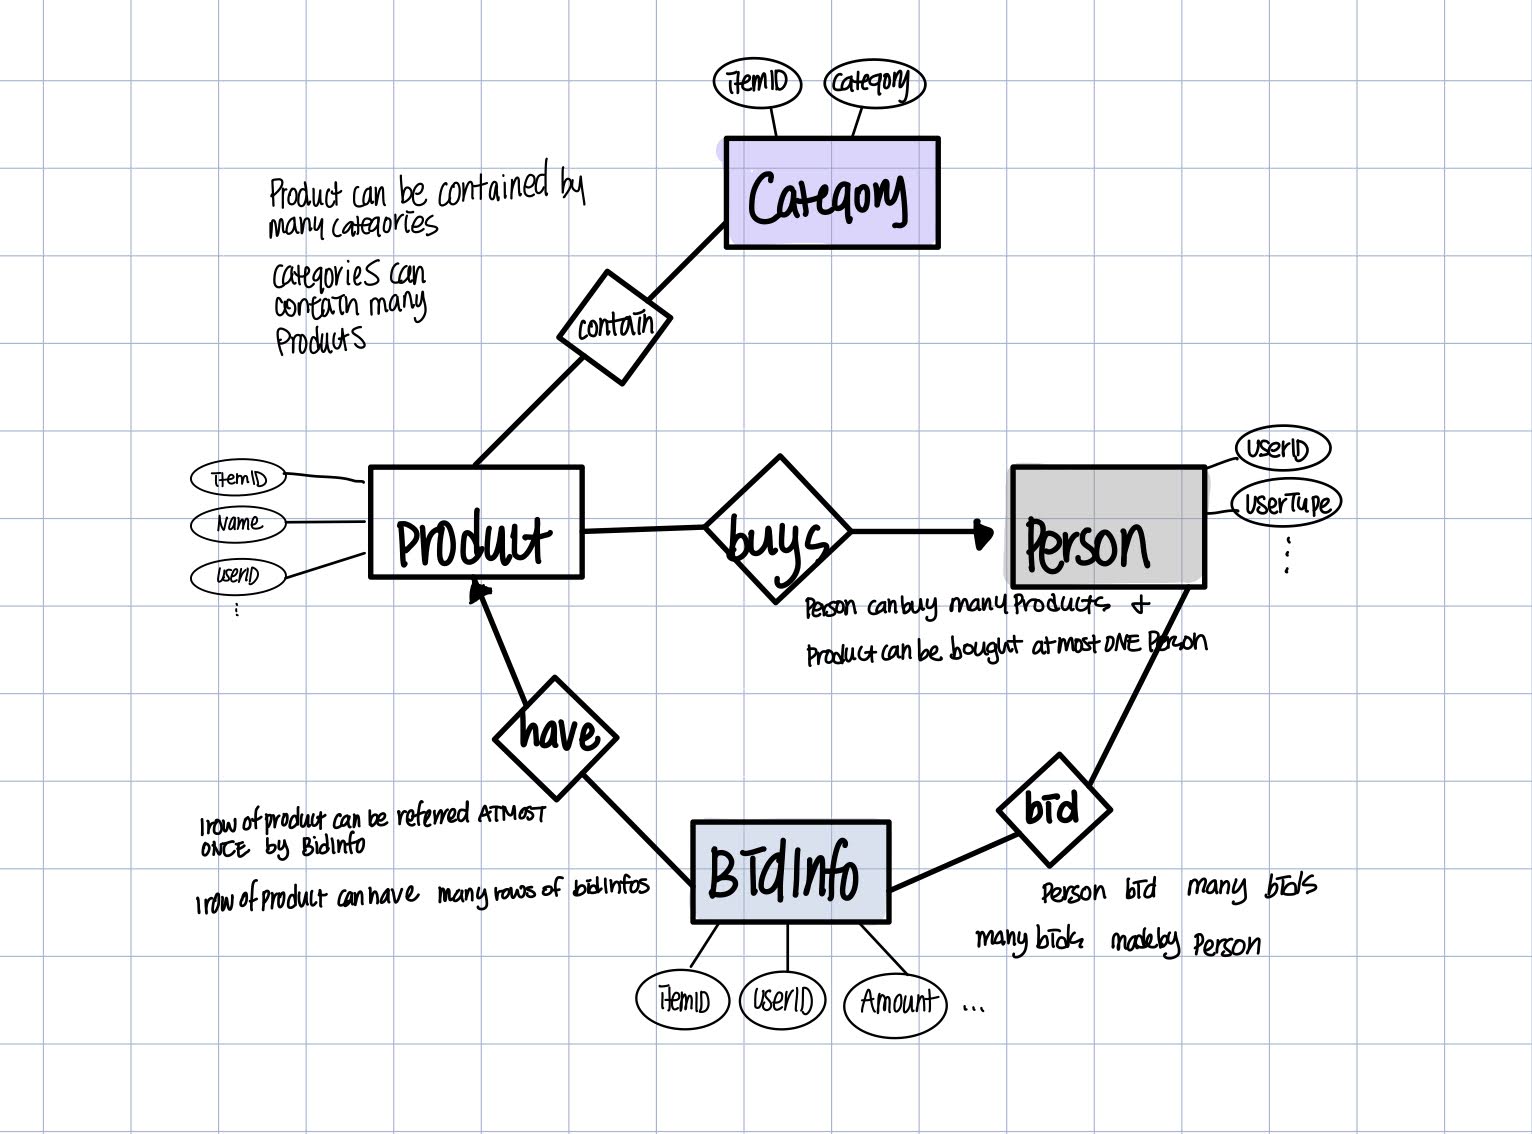 itemID
category
Category
Product can be contained by
many categories
categories can
contain many
Products
contain
ItemID
Name
userID
Product
buys
Person
userID
userType
Person can buy many Products +
Product can be bought atmost ONE Person
have
1 row of product can be referred ATMOST
ONCE by BidInfo
1 row of Product can have many rows of bidinfos
bid
BidInfo
Person bid many bids
many bids made by Person
itemID
userID
Amount ...